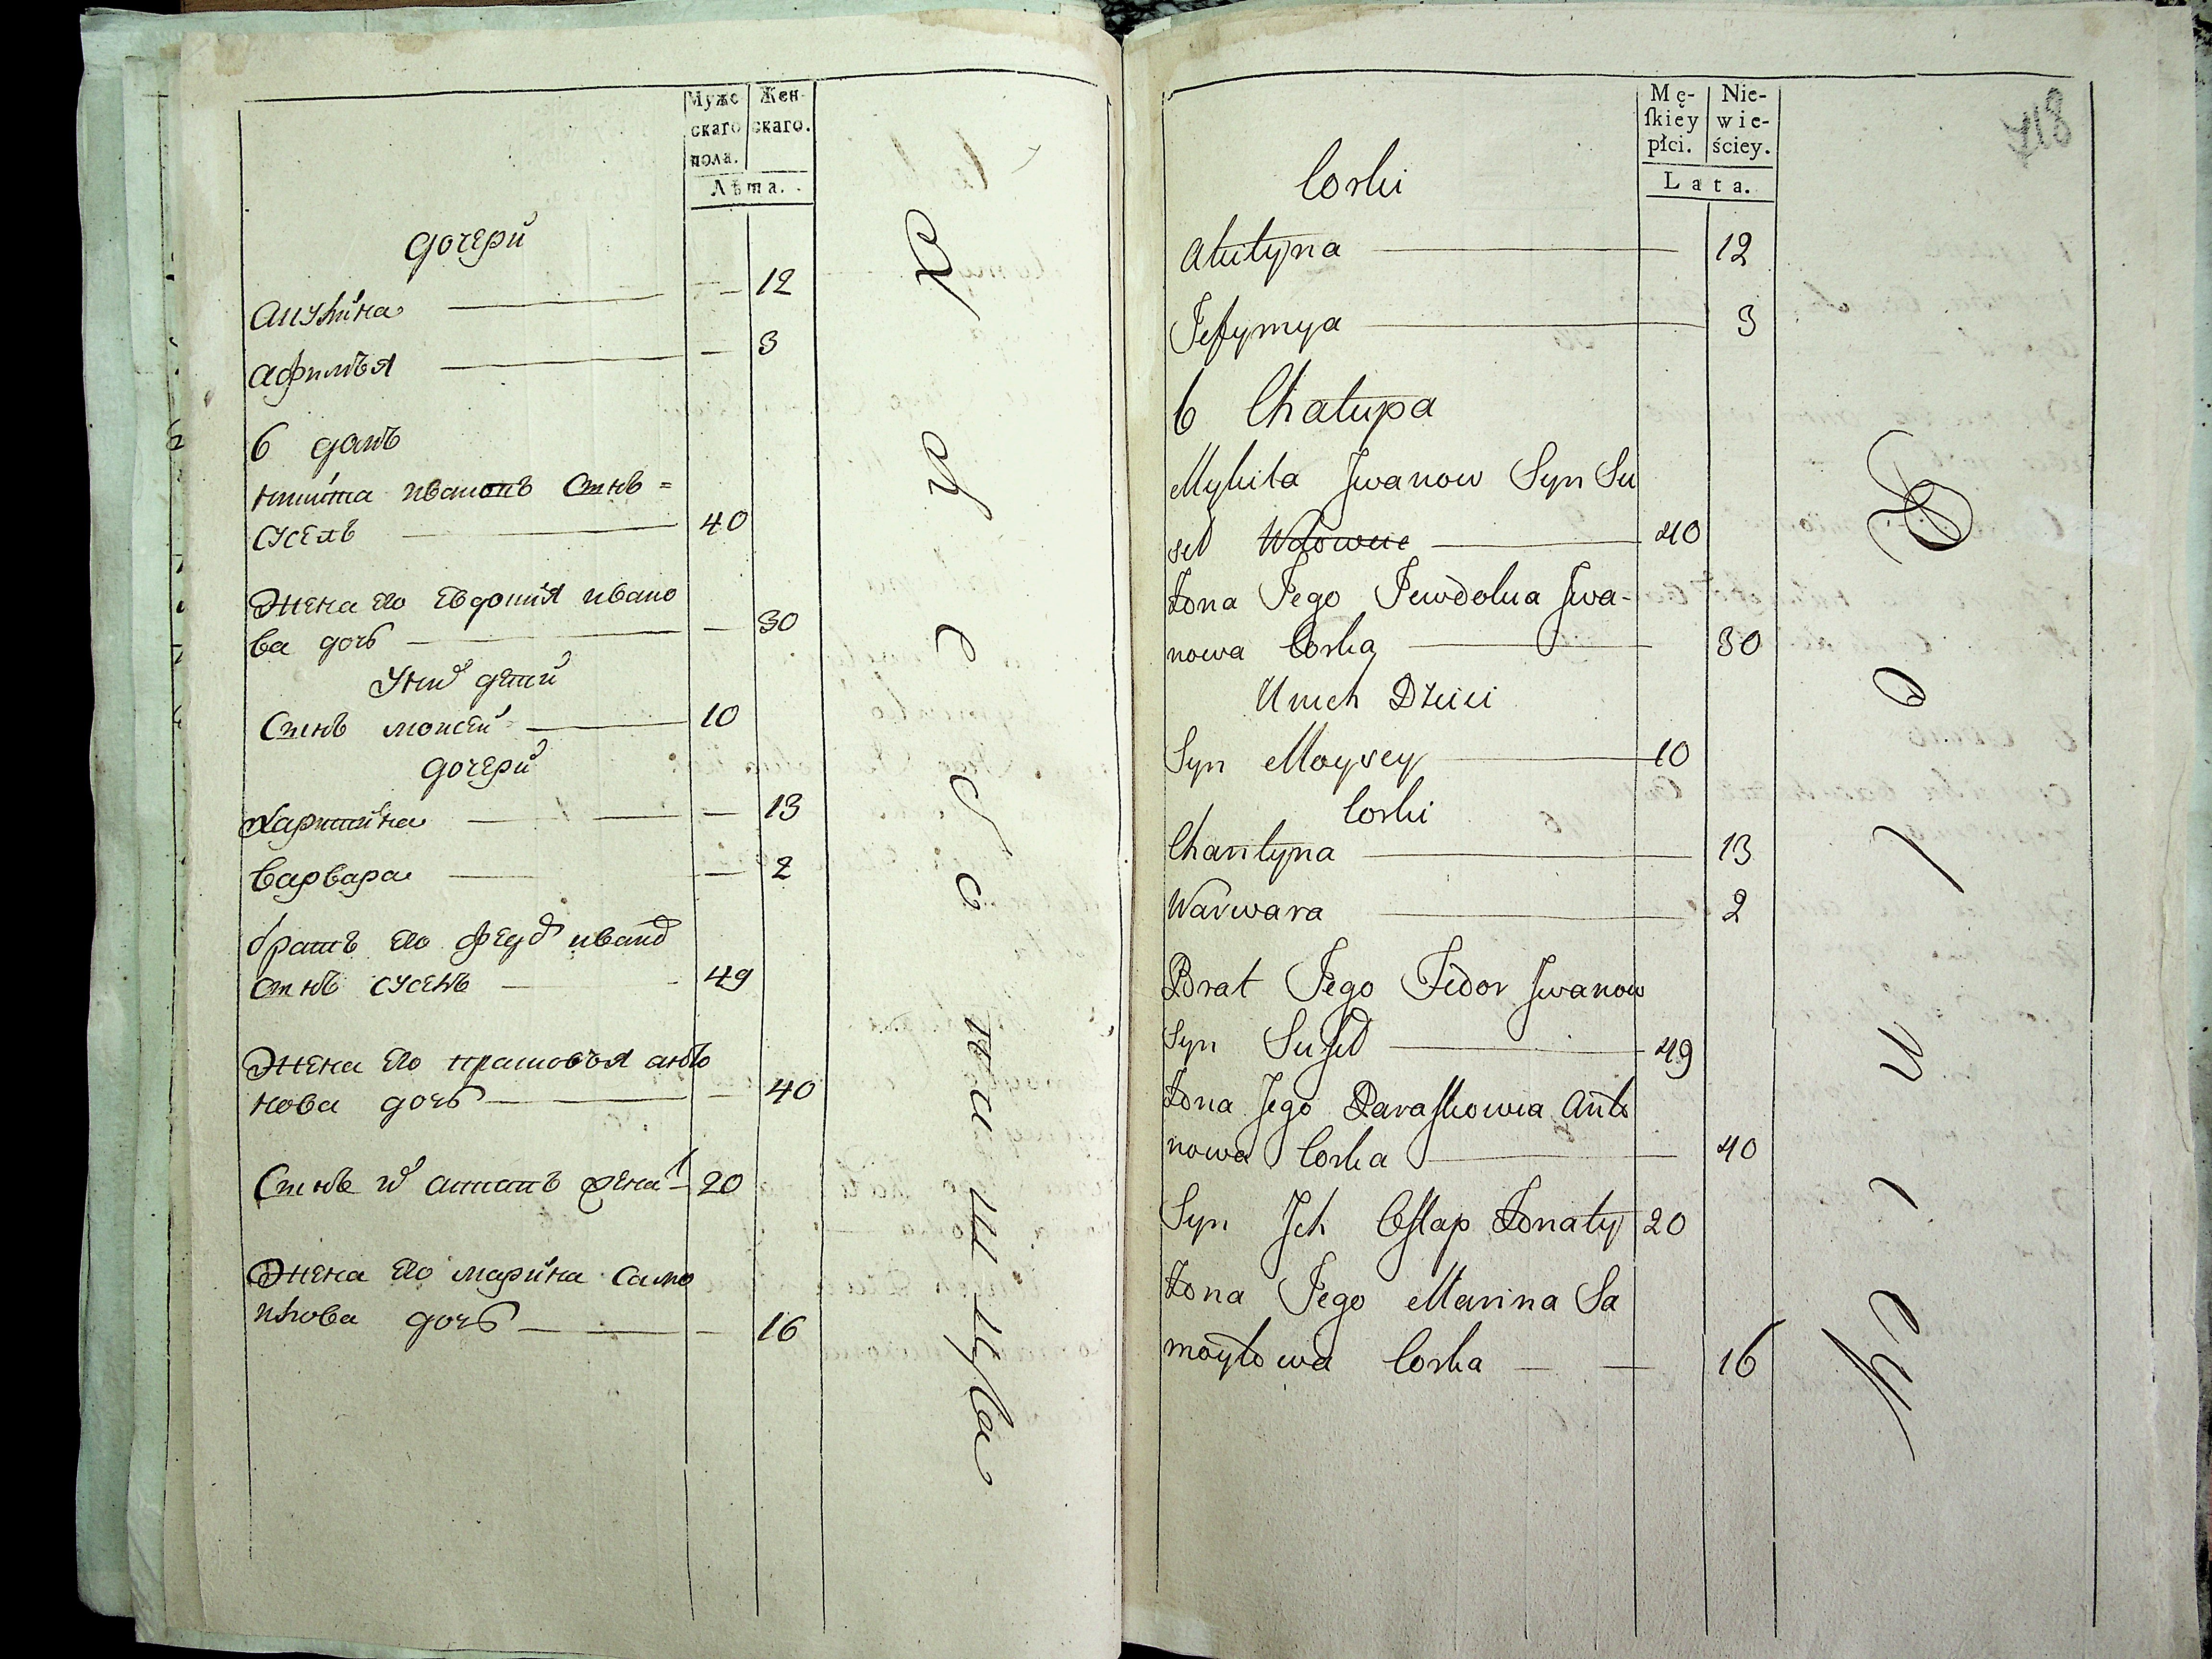 Муже
скаго
пола.
Жен-
скаго.
Лѣта.
дочери
Акулина — 12
Афимья — 3
6 домъ
никита ивановъ сынъ =
сусель — 40
жена его Евдокия ивано
ва дочь — 30
У них дети
Сынъ моисей — 10
дочери
харитина — 13
варвара — 2
братъ его Федоръ иванов
сынъ сусель — 49
жена его прасковья анто
нова дочь — 40
Сынъ их астапъ женат — 20
жена его марина само
йлова дочь — 16
Mę-
ſkiey
płci.
Nie-
wie-
ściey.
Lata.
817
Corki
Akulyna — 12
Jefymya — 3
6 Chałupa
Mykita Jwanow Syn Su
sel — 40
Żona Jego Jewdokia Jwa-
nowa Corka — 30
U nich Dzieci
Syn Moysey — 10
Corki
Charytyna — 13
Warwara — 2
Brat Jego Fedor Jwanow
Syn Suſel — 49
Żona Jego Paraſkowia Anto
nowa Corka — 40
Syn Jch Oſtap Żonaty 20
Żona Jego Marina Sa
moyłowa Corka — 16